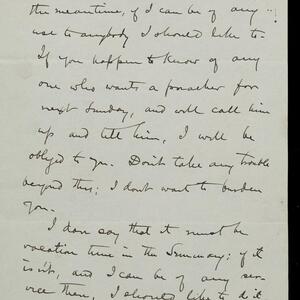 the meantime, if I can be of any
use to anybody I should like to.
If you happen to know of any
one who wants a preacher for
next Sunday, and will call him
up and tell him, I will be
obliged to you. Don't take any trouble
beyond this; I don't want to burden
you.
I dare say that it must be
vacation time in the Seminary; if it
isn't, and I can be of any ser-
vice then, I should like to do it